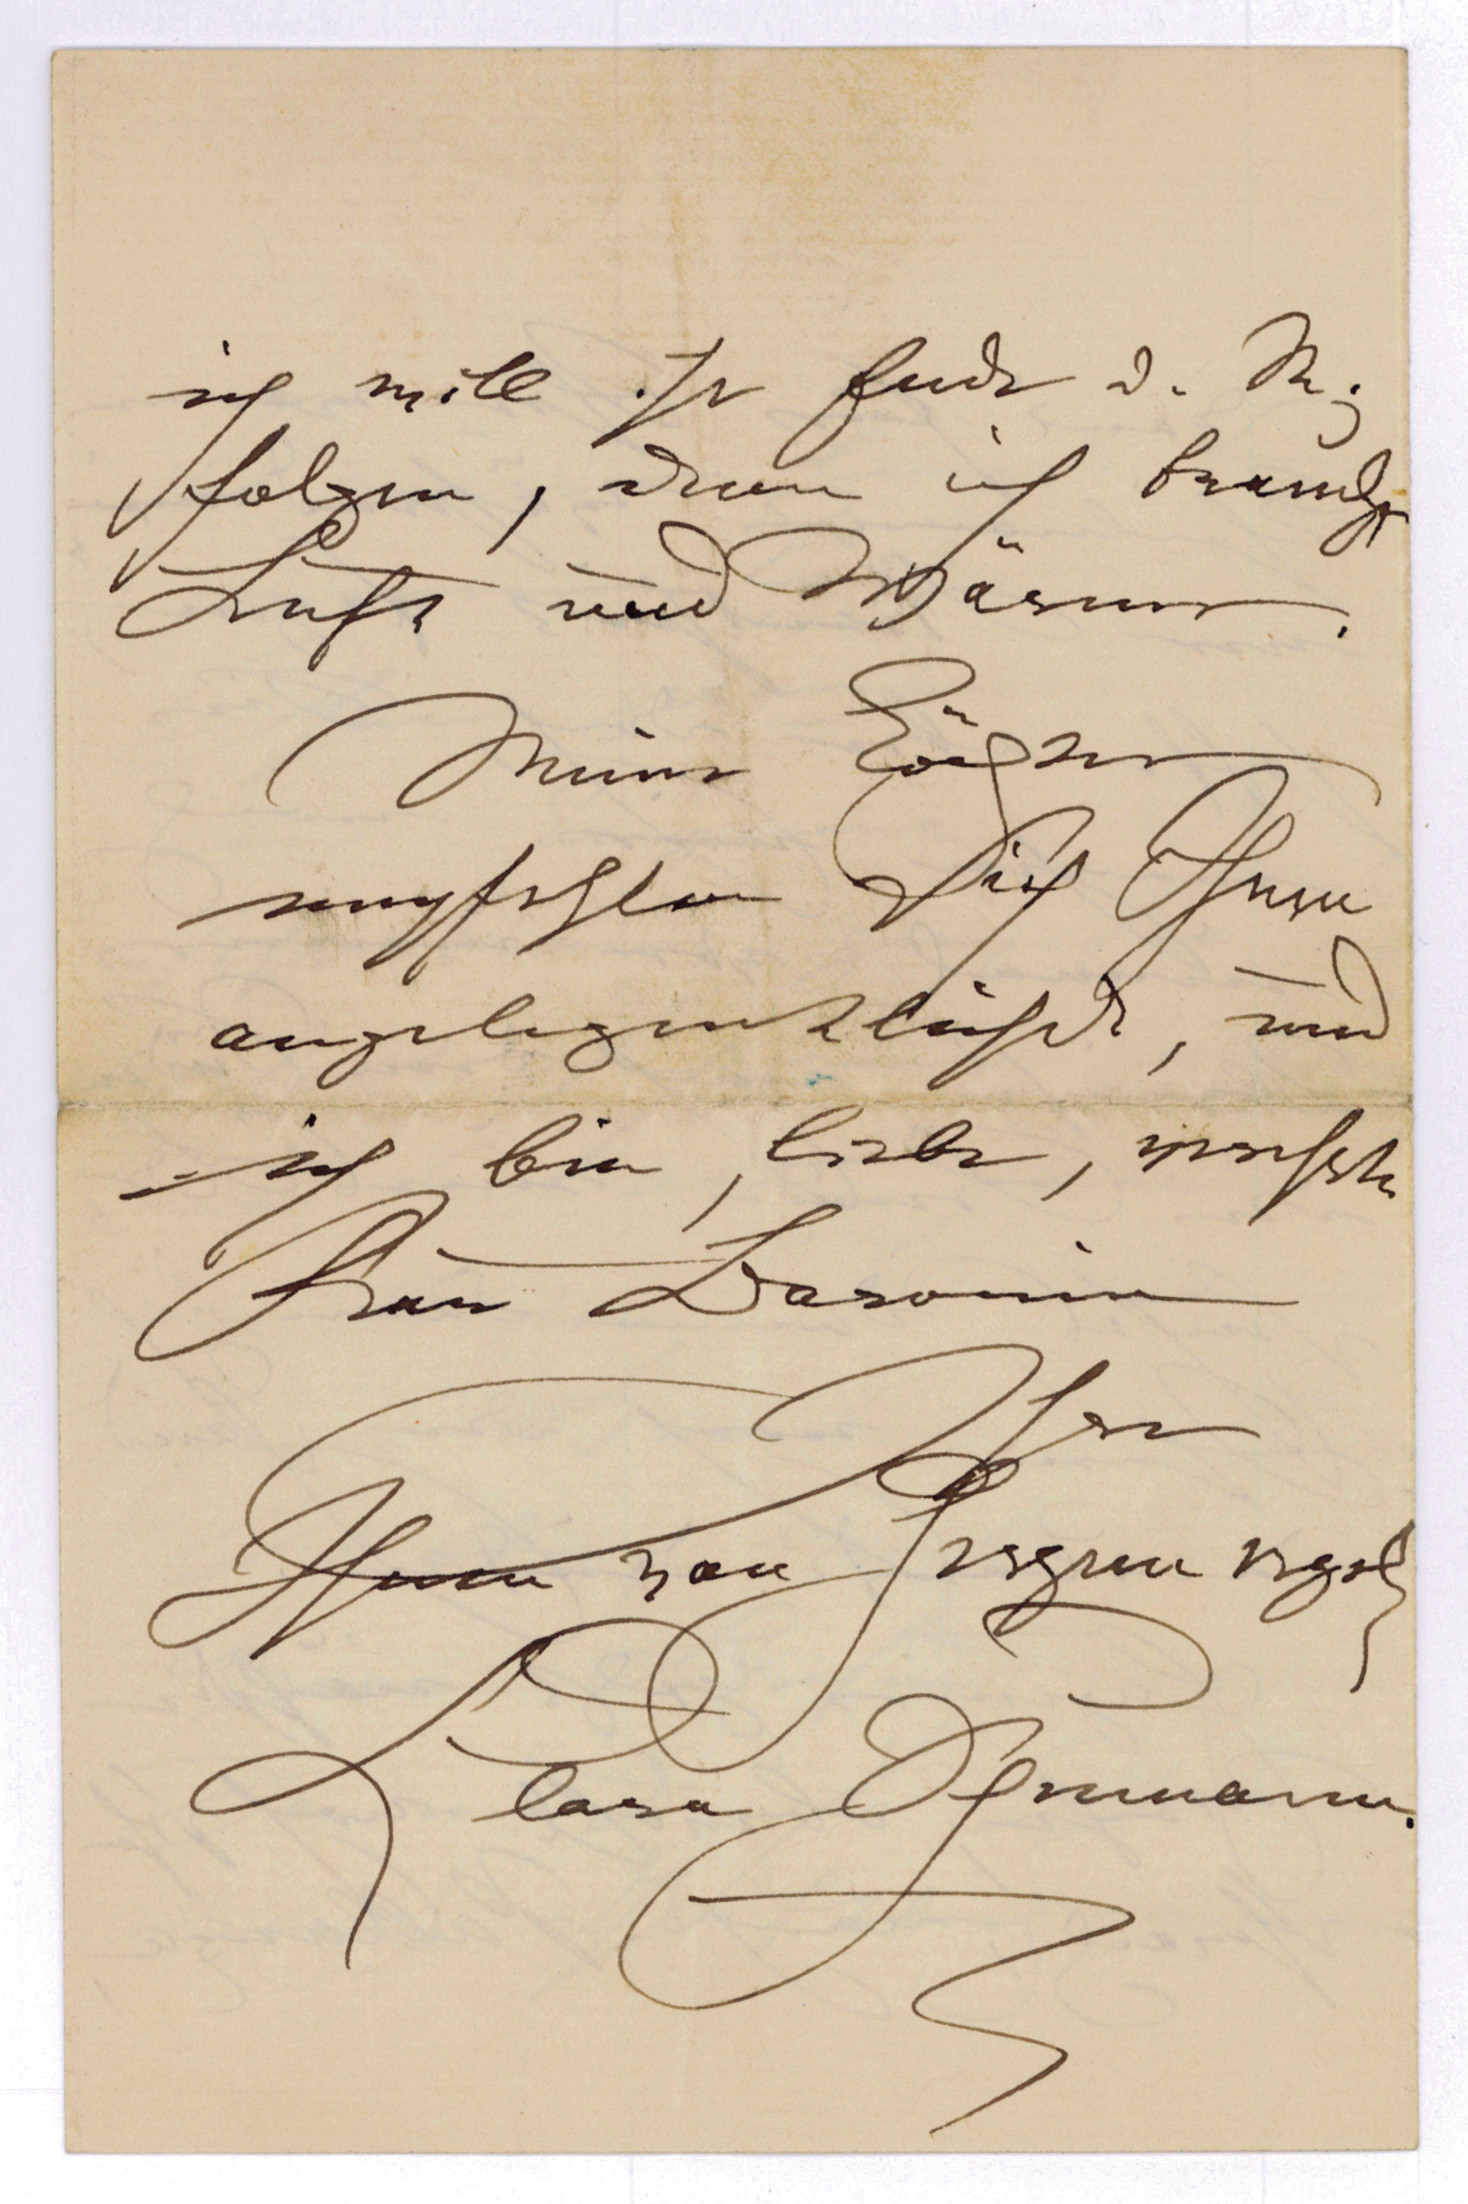 ich will ihr Ende d. M.
folgen, denn ich brauche
Luft und Wärme.
Meine Töchter
empfehlen sich Ihnen
angelegentlichst, und
ich bin, liebe, verehrte
Frau Baronin
Ihre
Ihnen von Herzen ergeb
Clara Schumann.